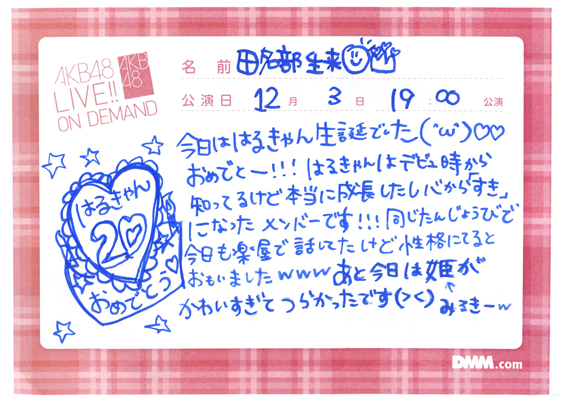 AKB48
LIVE!!
ON DEMAND
AKB
48
名 前 田名部生来
公演日 12月 3日 19:00 公演
今日ははるきゃん生誕でした(´ω`)♡♡
おめでとー!!! はるきゃんはデビュ時から
知ってるけど本当に成長したし心から「すき」
になったメンバーです!!! 同じたんじょうびで
今日も楽屋で話してたけど性格にてると
おもいましたwww あと今日は姫が
かわいすぎてつらかったです(><) ↑みるきーw
はるきゃん
20
おめでとう♡
DMM.com